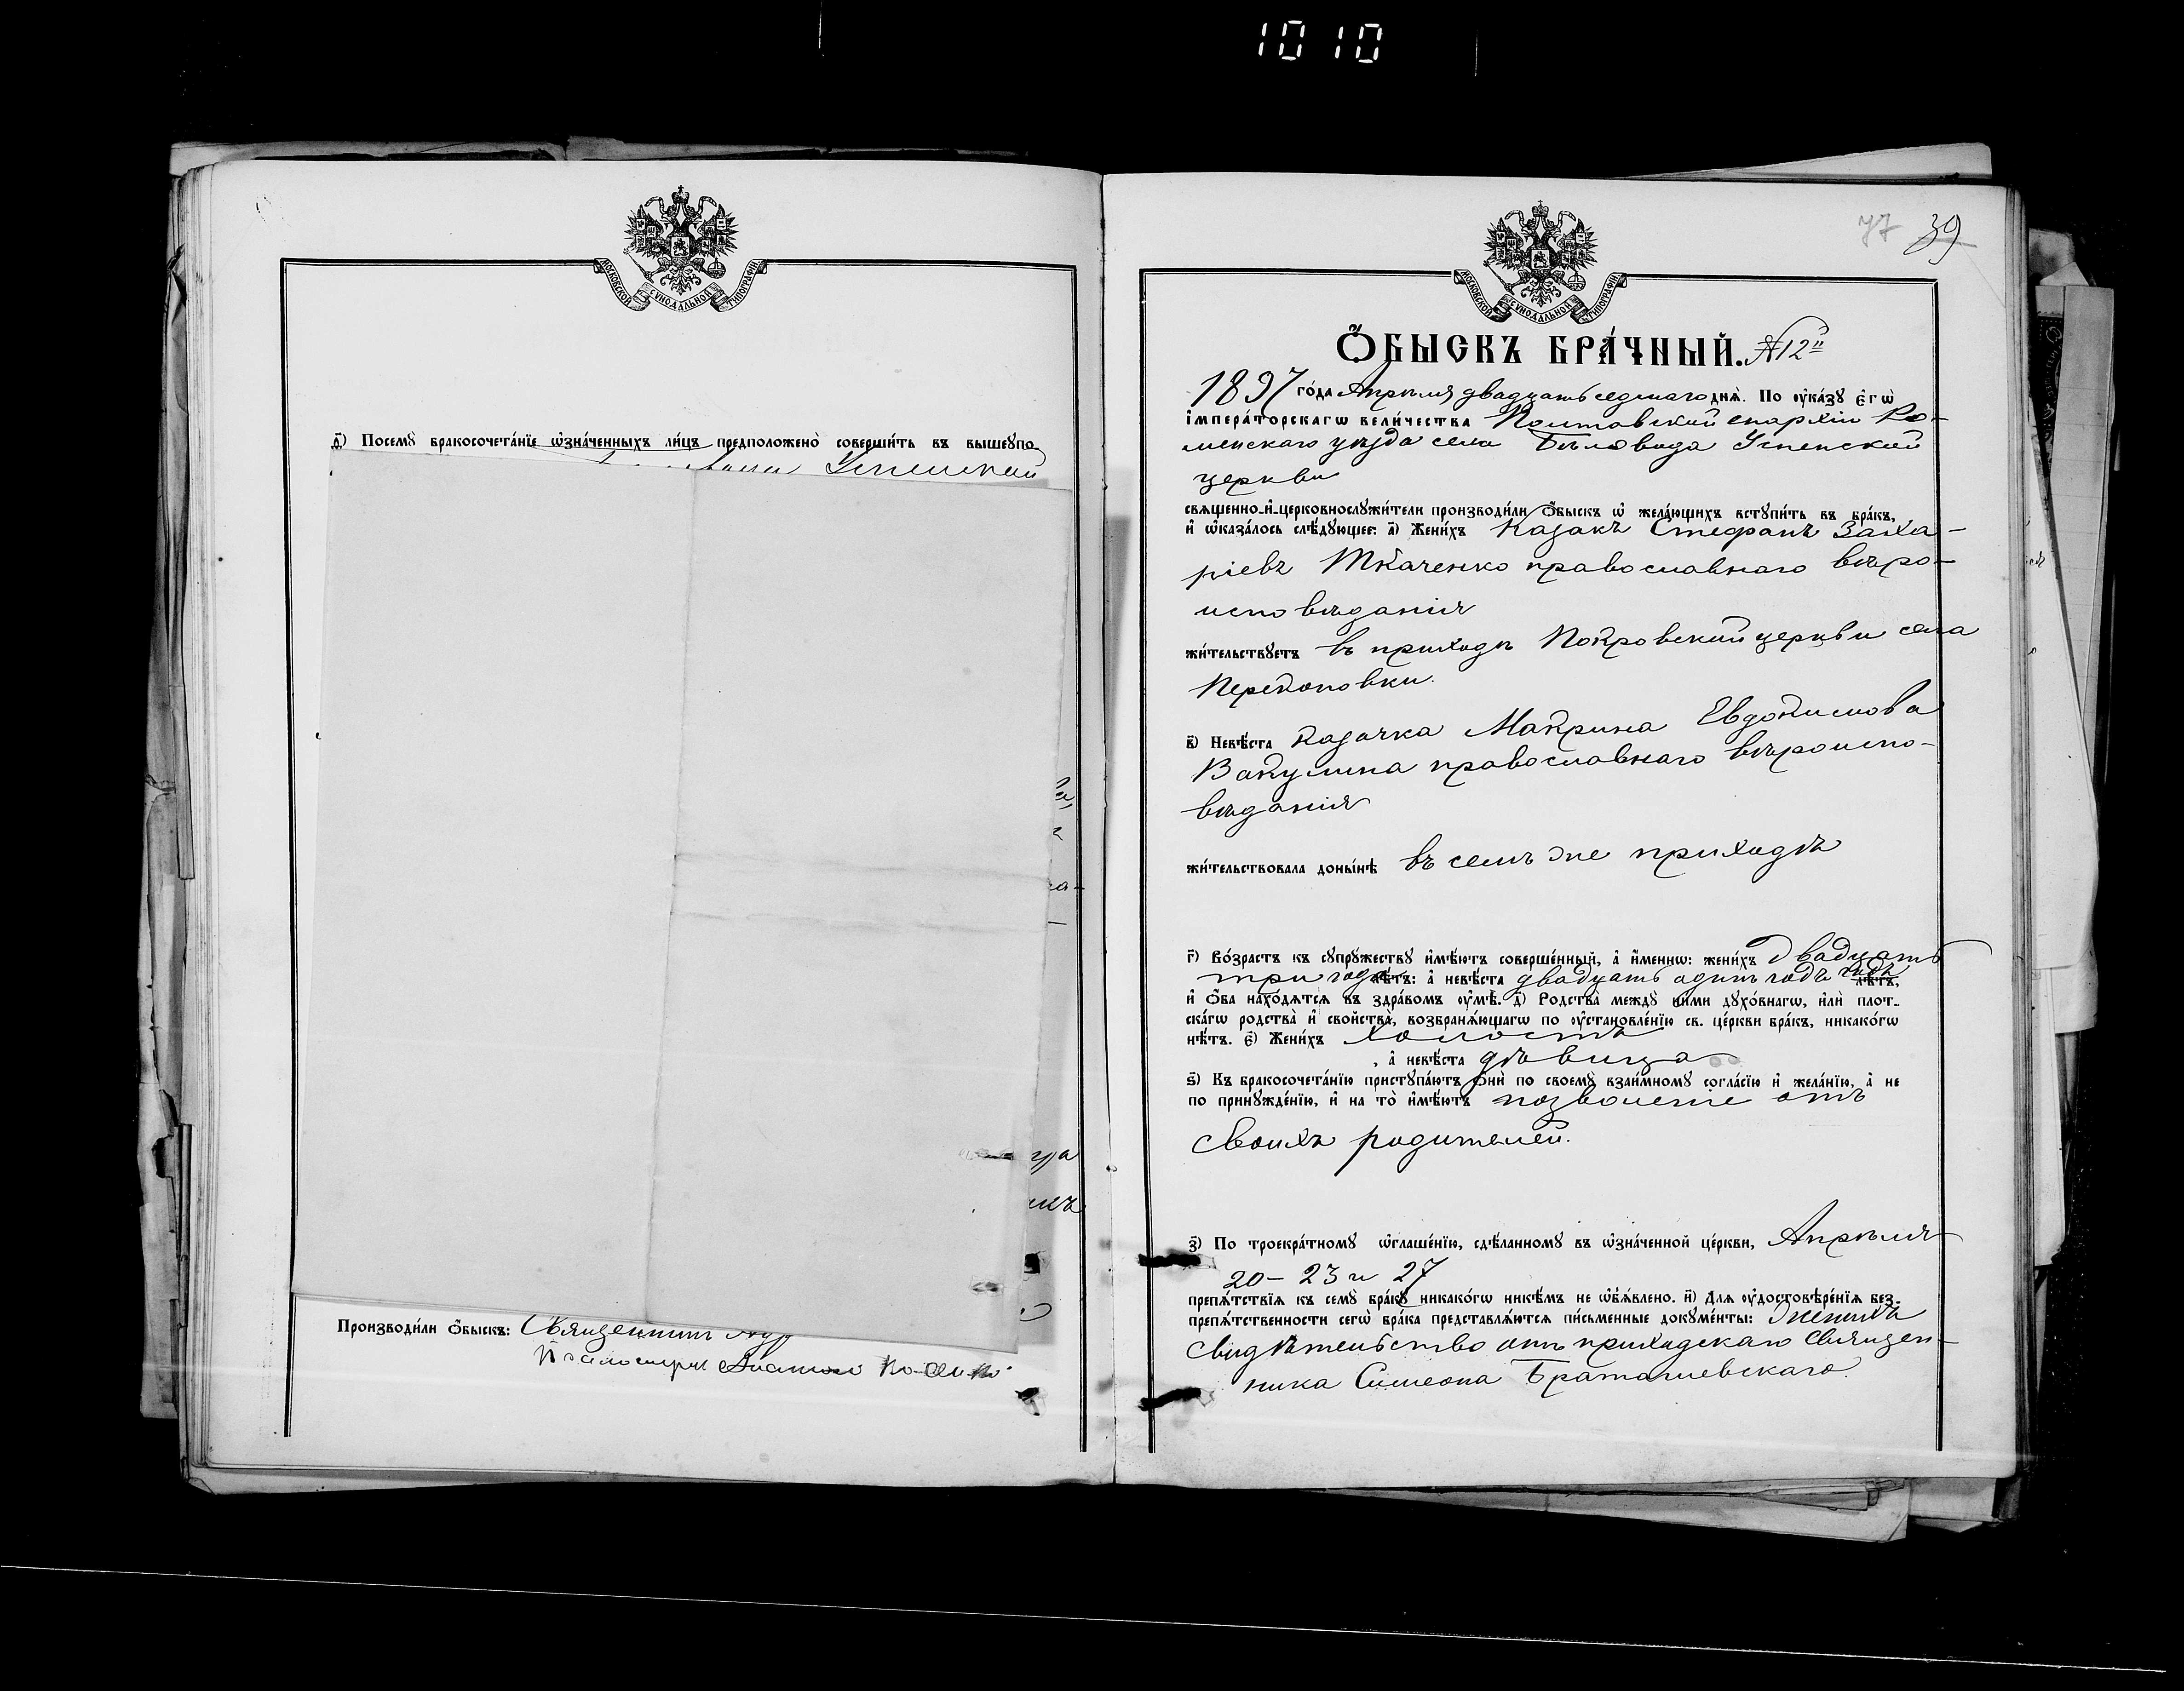 1010
МОСКОВСКОЙ СѴНОДАЛЬНОЙ ТИПОГРАФІИ
д҃) Посемꙋ̀ бракосочета́нїе ѡ҆зна́ченныхъ ли́цъ предположено̀ соверши́ть въ вышеꙋпо
Успенской
Производи́ли ѻ҆́быскъ: Священникъ
Псаломщикъ
77 39
МОСКОВСКОЙ СѴНОДАЛЬНОЙ ТИПОГРАФІИ
Ѻ҆́БЫСКЪ БРА́ЧНЫЙ. № 12й
1897 го́да Апрѣля двадцать седьмаго днѧ̀. По ᲂу҆ка́зꙋ є҆гѡ̀
і҆мпера́торскагѡ вели́чества Полтавской епархіи Ро-
менскаго уѣзда села Бѣловода Успенской
церкви
свѧщенно-и҆-церковнослꙋжи́тели производи́ли ѻ҆́быскъ ѡ҆ жела́ющихъ встꙋпи́ть въ бра́къ,
и҆ ѡ҆каза́лось слѣ́дꙋющее: а҃) Жени́хъ Казакъ Стефанъ Заха-
ріевъ Ткаченко православнаго вѣро-
исповѣданія
жи́тельствꙋетъ въ приходѣ Покровской церкви села
Перекоповки.
в҃) Невѣ́ста казачка Макрина Евдокимова
Вакулина православнаго вѣроиспо-
вѣданія
жи́тельствовала доны́нѣ въ семъ же приходѣ
г҃) Во́зрастъ къ сꙋпрꙋ́жествꙋ и҆мѣ́ютъ соверше́нный, а҆ и҆́меннѡ: жени́хъ двадцать
три года лѣ́тъ: а҆ невѣ́ста двадцать одинъ годъ годъ лѣ́тъ,
и҆ ѻ҆́ба нахо́дѧтсѧ въ здра́вомъ ᲂу҆мѣ̀. д҃) Родства̀ междꙋ̀ ними дꙋхо́внагѡ, и҆лѝ плот-
ска́гѡ родства̀ и҆ свойства̀, возбранѧ́ющагѡ по ᲂу҆становле́нїю св. це́ркви бра́къ, никако́гѡ
нѣ́тъ. є҃) Жени́хъ холостъ
, а҆ невѣ́ста дѣвица
ѕ҃) Къ бракосочета́нїю пристꙋпа́ютъ ѻ҆нѝ по своемꙋ̀ взаи́мномꙋ согла́сїю и҆ жела́нїю, а҆ не
по принꙋжде́нїю, и҆ на то̀ и҆мѣ́ютъ позволеніе отъ
своихъ родителей.
з҃) По троекра́тномꙋ ѡ҆глаше́нїю, сдѣ́ланномꙋ въ ѡ҆зна́ченной це́ркви, Апрѣля
20 – 23 и 27
препѧ́тствїѧ къ семꙋ̀ бра́кꙋ никако́гѡ никѣ́мъ не ѡ҆б̾ѧ́влено. и҃) Длѧ ᲂу҆достовѣре́нїѧ без-
препѧ́тственности сегѡ̀ бра́ка представлѧ́ютсѧ пи́сьменные докꙋме́нты: жениха
свидѣтельство отъ приходскаго священ-
ника Симеона Браташевскаго.